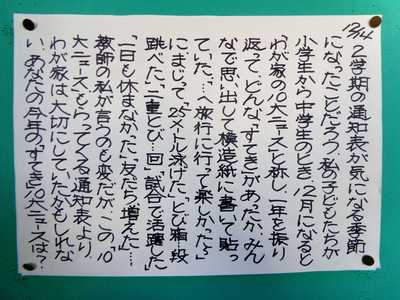 12/14
2学期の通知表が気になる季節
になったことだろう。私の子どもたちが
小学生から中学生のとき、12月になると
「わが家の10大ニュース」と称し、一年を振り
返って、どんな「すてき」があったか、みん
なで思い出して模造紙に書いて貼っ
ていた。…へ旅行に行って楽しかった〜
に、まじって、「25メートル泳げた」「とび箱…段
跳べた」「二重とび…回」「試合で活躍した」
「一日も休まなかった」「友だち増えた」…
教師の私が言うのも変だが、この「10
大ニュース」もらってくる通知表より、
わが家は大切にしていたかもしれな
い。あなたの今年の「すてき」10大ニュースは?